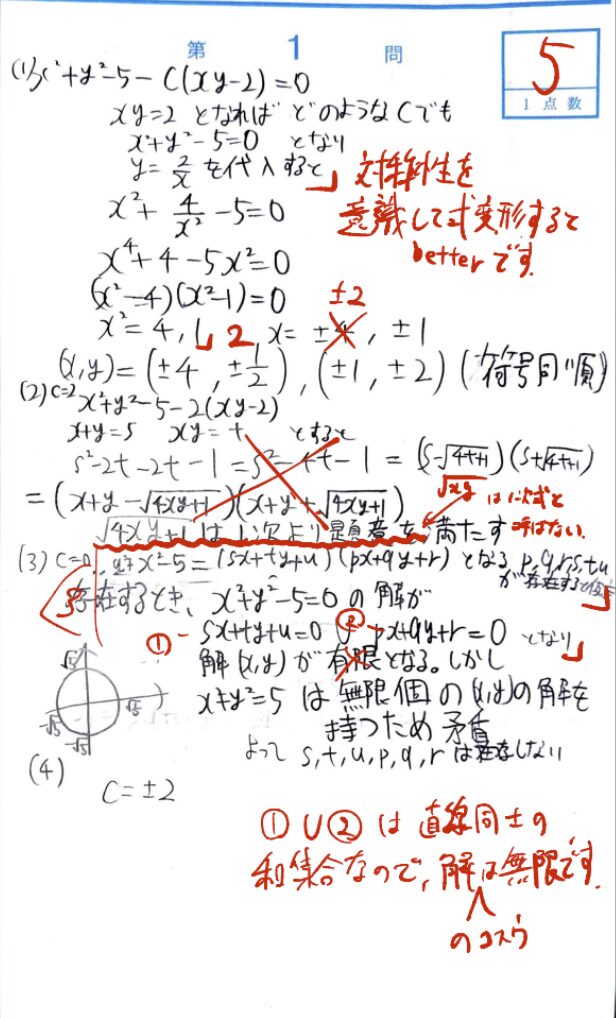 第 1 問
5
1 点 数
(1) x²+y²-5-C(xy-2)=0
xy=2 となれば どのようなCでも
x²+y²-5=0 となり
y=2/x を代入すると
対称性を
意識して式変形すると
betterです.
x²+4/x²-5=0
x⁴+4-5x²=0
(x²-4)(x²-1)=0
±2
x²=4,1 2 x=±4,±1
(x,y)=(±4,±1/2),(±1,±2)(符号同順)
(2) C=2 x²+y²-5-2(xy-2)
x+y=s xy=t とすると
s²-2t-2t-1=s²-4t-1=(s-√4t+1)(s+√4t+1)
=(x+y-√4xy+1)(x+y+√4xy+1)
√xy は1次式と
呼ばない.
√4xy+1は1次より題意を満たす
(3) C=0 x²+y²-5=(sx+ty+u)(px+qy+r)となる p,q,r,s,t,u
が存在すると仮
存在するとき、x²+y²-5=0の解が
① ②
sx+ty+u=0 px+qy+r=0 となり
解(x,y)が有限となる。しかし
√5
-√5 √5
-√5
x²+y²=5 は無限個の(x,y)の解を
持つため矛盾
よって s,t,u,p,q,rは存在しない
(4)
C=±2
①∪②は直線同士の
和集合なので,解は無限です.
のコスウ